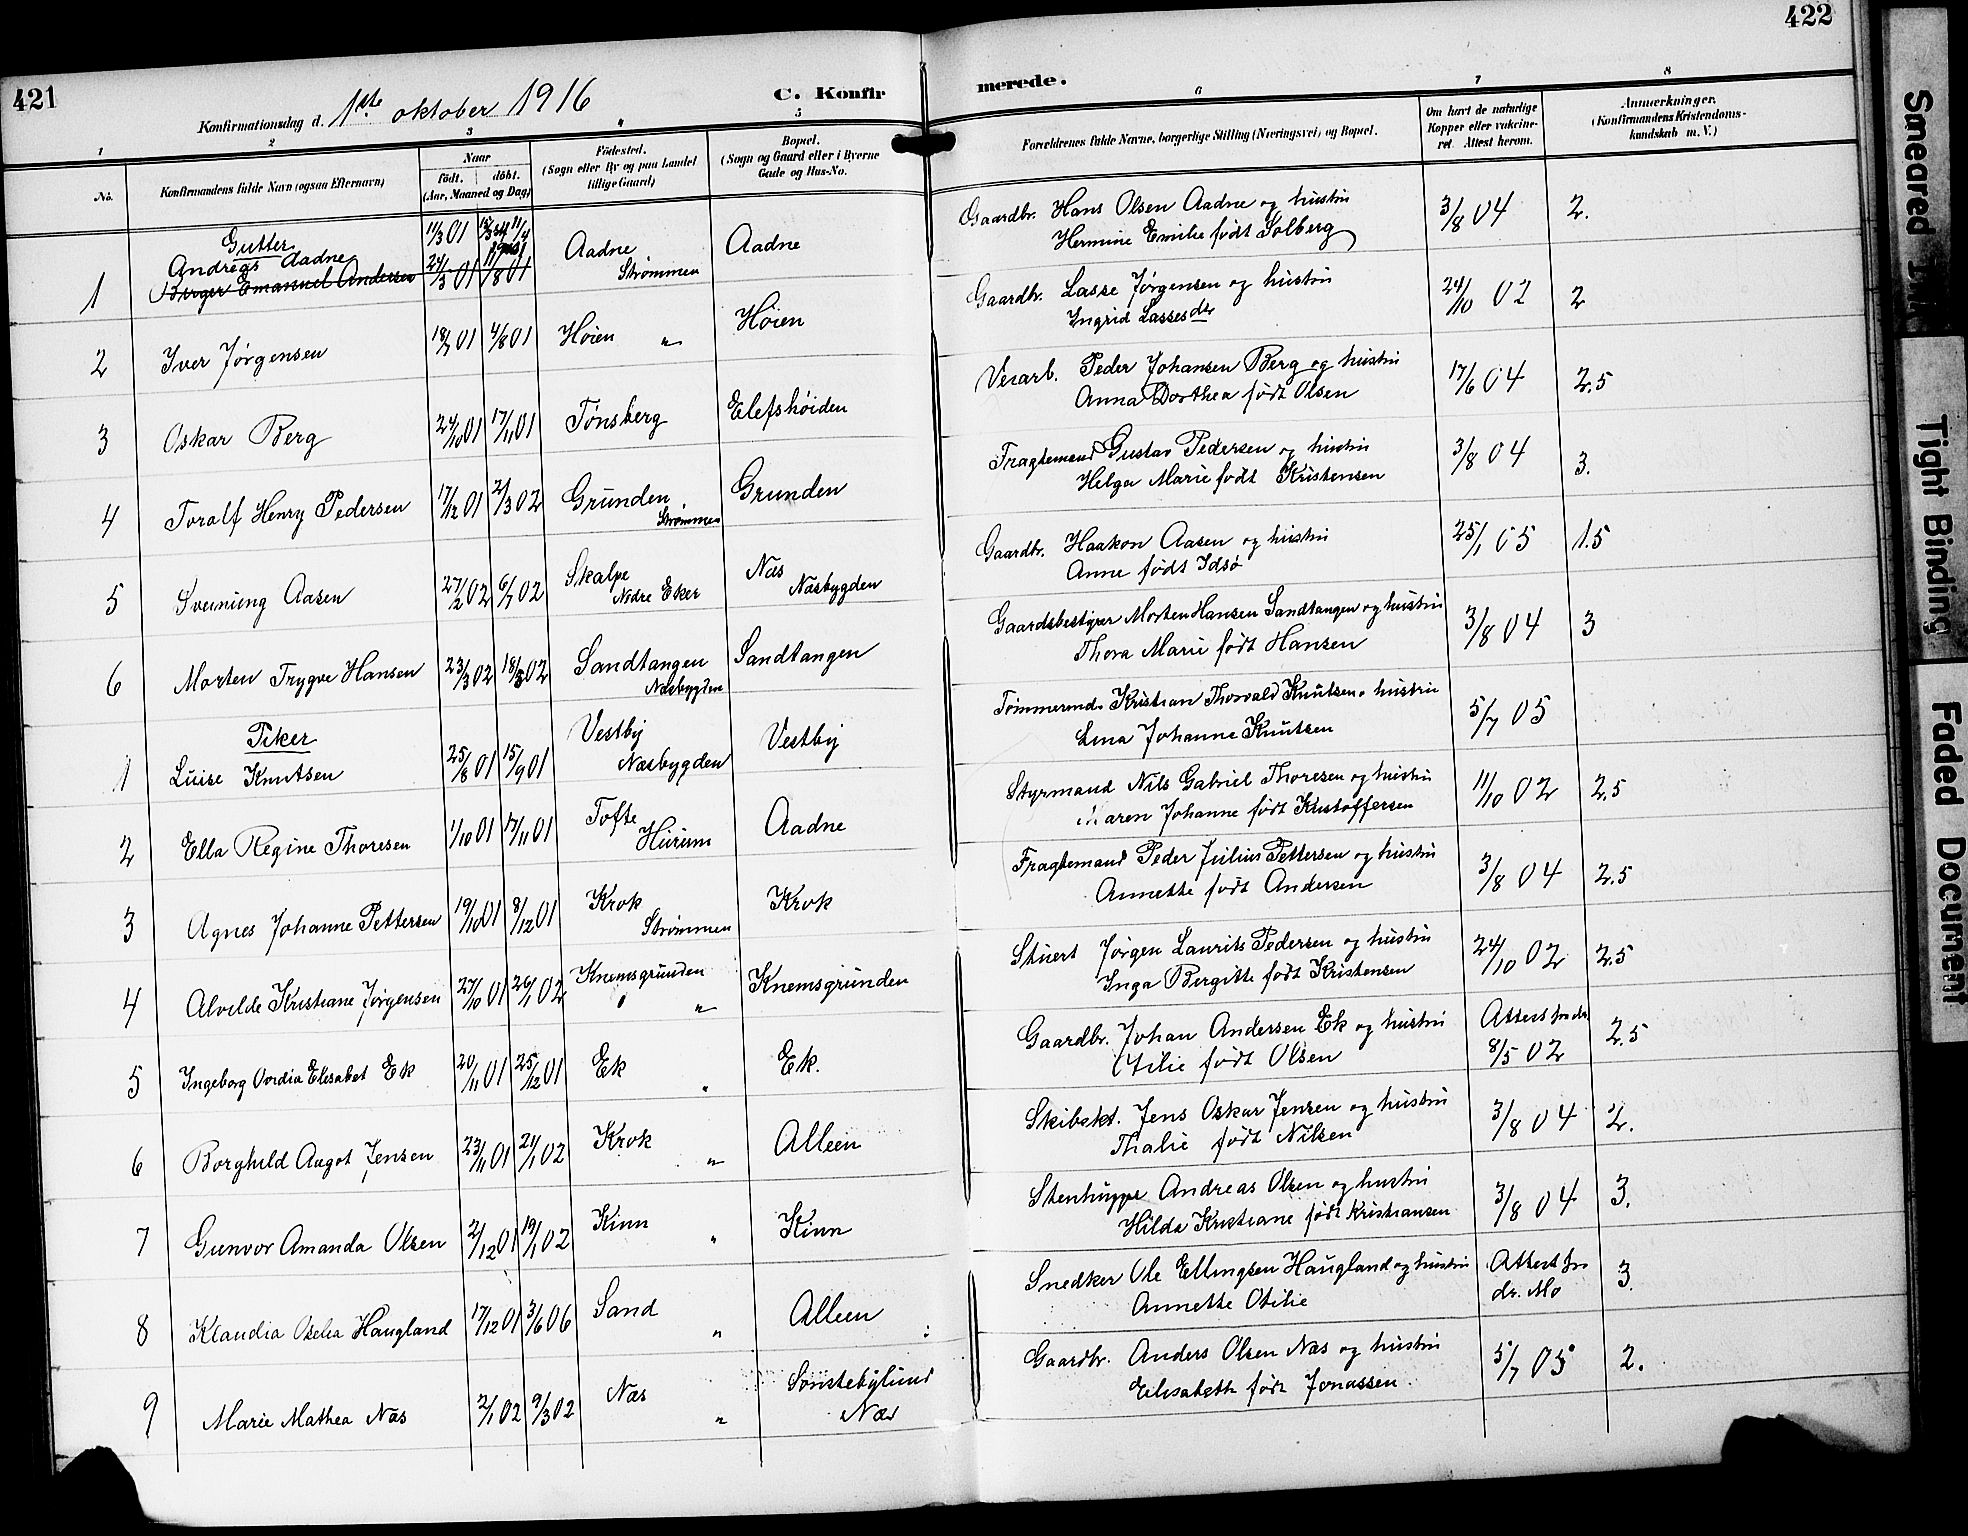 421
Konfirmationsdag d. 1ste oktober 1916
C. Konfir
1
2
3
5
No.
Konfirmandens fulde Navn (ogsaa Efternavn)
Naar
født. døbt.
(Aar, Maaned og Dag)
Fødested.
(Sogn eller By og paa Landet
tillige Gaard)
Bopæl.
(Sogn og Gaard eller i Byerne
Gade og Hus-No.
Gutter
Andreas Aadne
1 Birger Emanuel Andersen 11/3 01 24/3 01 11/8 01 Aadne Strømmen Aadne
2 Iver Jørgensen 18/7 01 4/8 01 Høien " Høien
3 Oskar Berg 24/10 01 17/11 01 Tønsberg Elefshøiden
4 Toralf Henry Pedersen 17/12 01 2/3 02 Grunden Strømmen Grunden
5 Sveinung Aasen 27/2 02 6/7 02 Skalpe Nedre Eker Næs Næsbygden
6 Morten Trygve Hansen 23/3 02 18/5 02 Sandtangen Næsbygden Sandtangen
Piker
1 Luise Knutsen 25/8 01 15/9 01 Vestby Næsbygden Vestby
2 Ella Regine Thoresen 1/10 01 17/11 01 Tofte Hurum Aadne
3 Agnes Johanne Pettersen 19/10 01 8/12 01 Krok Strømmen Krok
4 Alvilde Kristiane Jørgensen 27/10 01 26/1 02 Knemsgrunden " Knemsgrunden
5 Ingeborg Elisabet Ek 20/11 01 25/12 01 Ek " Ek.
6 Borghild Aagot Jensen 23/11 01 21/1 02 Krok " Alleen
7 Gunvor Amanda Olsen 2/12 01 19/1 02 Kinn " Kinn
8 Klaudia Oselia Haugland 17/12 01 3/6 06 Sand " Alleen
9 Marie Mathea Næs 2/1 02 9/3 02 Næs " Sønstebylund Næs
422
merede.
6
7
8
Forældrenes fulde Navne, borgerlige Stilling (Næringsvei) og Bopæl.
Om havt de naturlige
Kopper eller vakcine-
ret. Attest herom.
Anmærkninger.
(Konfirmandens Kristendoms-
kundskab m. V.)
Gaardbr. Hans Olsen Aadne og hustru 3/8 04 2.
Hermine Emilie født Solberg
Gaardbr. Lasse Jørgensen og hustru 24/10 02 2
Ingrid Lassesdtr
Veiarb. Peder Johansen Berg og hustru 17/6 04 2.5
Anna Dorthea født Olsen
Fragtemand Gustav Pedersen og hustru 3/8 04 3.
Helga Marie født Kristensen
Gaardbr. Haakon Aasen og hustru 25/1 05 1.5
Anne født Idsø
Gaardsbestyrer Morten Hansen Sandtangen og hustru 3/8 04 3
Thora Marie født Hansen
Tømmermd. Kristian Thorvald Knutsen o hustru 5/7 05
Lina Johanne Knutsen
Styrmand Nils Gabriel Thoresen og hustru 11/10 02 2.5
Maren Johanne født Kristoffersen
Fragtemand Peder Julius Pettersen og hustru 3/8 04 2.5
Annette født Andersen
Stuert Jørgen Laurits Pedersen og hustru 24/10 02 2.5
Inga Bergitte født Kristensen
Gaardbr. Johan Andersen Ek og hustru Attest fra dr. 2.5
Otilie født Olsen 8/5 02
Skibskt. Jens Oskar Jensen og hustru 3/8 04 2.
Thalie født Nilsen
Stenhugger Andreas Olsen og hustru 3/8 04 3.
Hilda Kristiane født Kristiansen
Snedker Ole Ellingsen Haugland og hustru Attest fra 3.
Annette Otilie dr. Mo
Gaardbr. Anders Olsen Næs og hustru 5/7 05 2.
Elisabeth født Jonassen.
Smeared Ink
Tight Binding
Faded Document